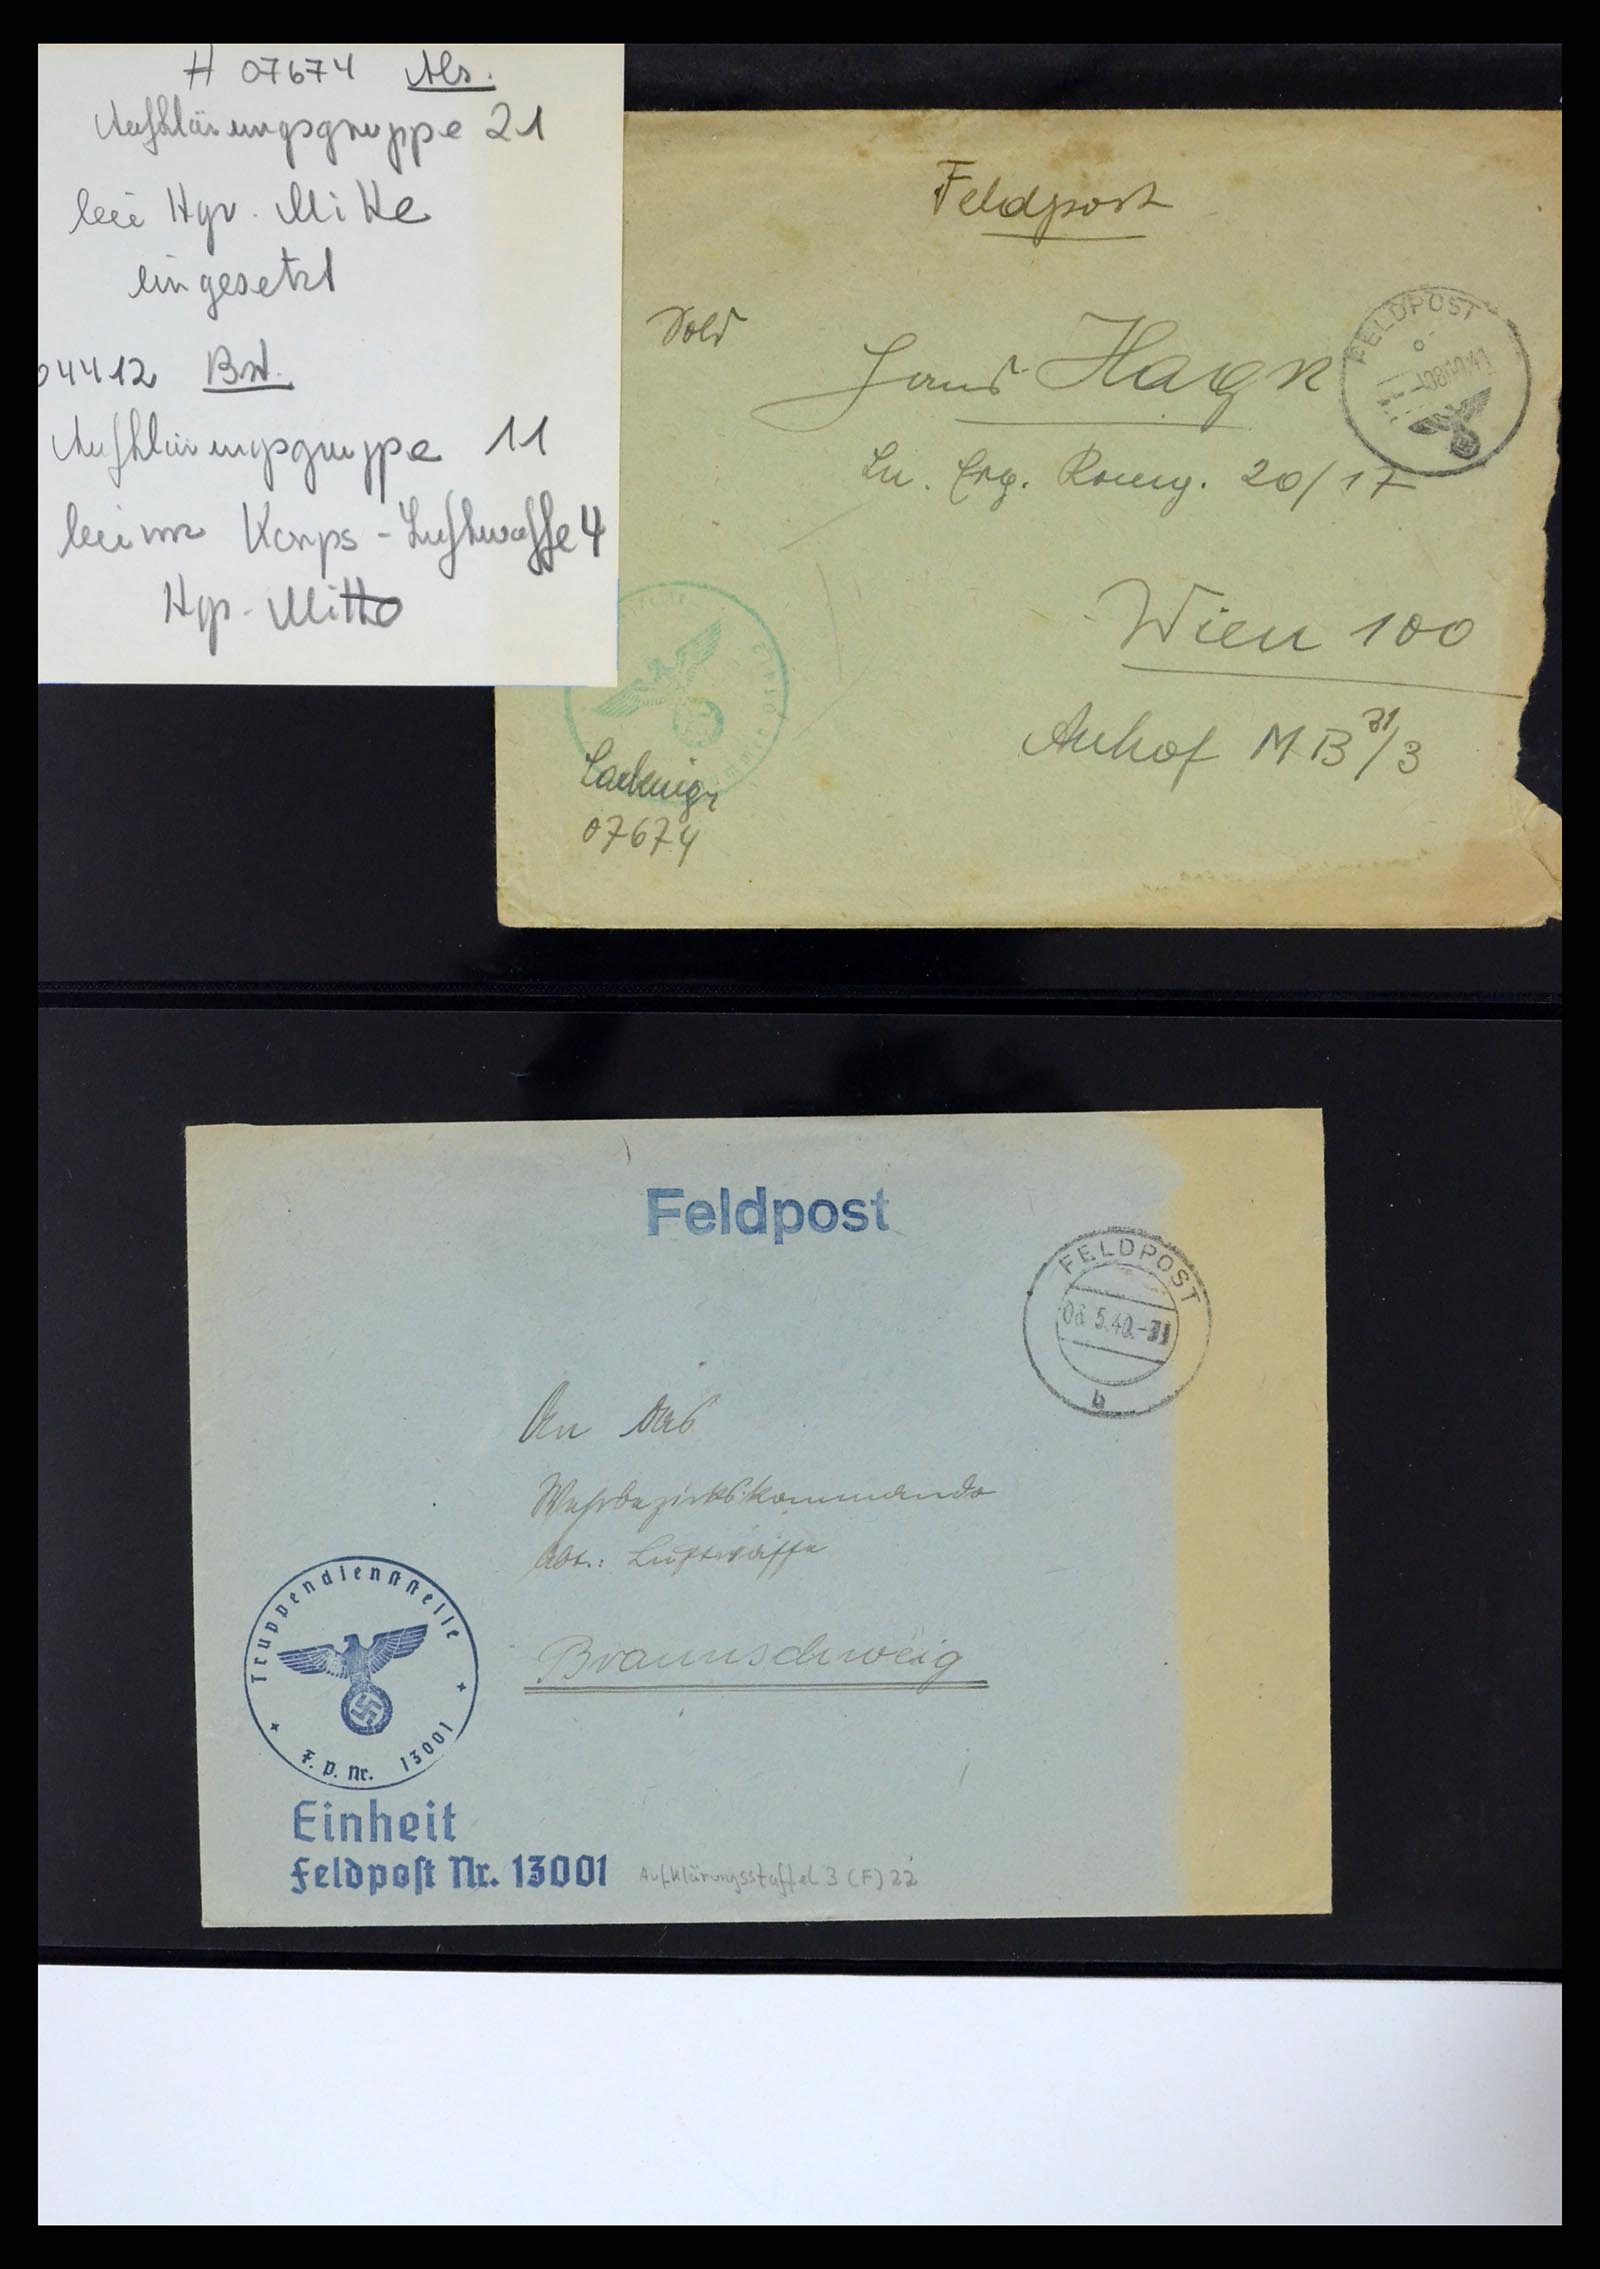 H 07674 Abs.
Aufklärungsgruppe 21
bei Hgr. Mitte
eingesetzt
04412 Bst.
Aufklärungsgruppe 11
beim Korps-Luftwaffe 4
Hgr. Mitte
Feldpost
FELDPOST
Sold
Hans Hagn
Ln. Erg. Komp. 20/17
Wien 100
Auhof MB 31/3
07674
Feldpost
FELDPOST
06.5.40.
b
An das
Wehrbezirkskommando
Abt.: Luftwaffe
Braunschweig
Truppendienststelle
F. P. Nr. 13001
Einheit
Feldpost Nr. 13001
Aufklärungsstaffel 3 (F) 22